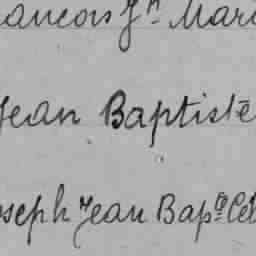 ancois Jn Mari
Jean Baptiste
oseph Jean Bapte Cel